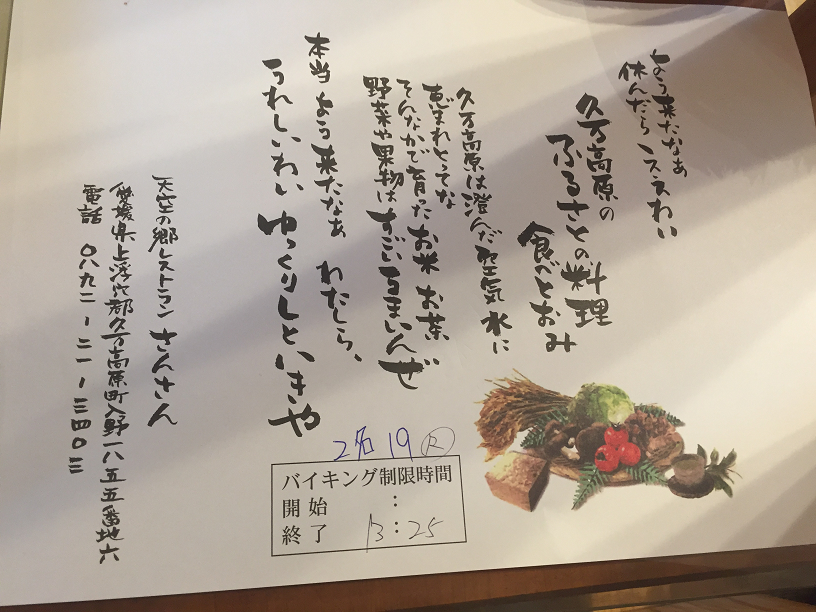 よう来たなぁ
休んだらええわい
久万高原の
ふるさとの料理
食べとおみ
久万高原は澄んだ空気 水に
恵まれとってな
そんなかで育ったお米 お茶
野菜や果物は すごいうまいんぜ
本当 よう来たなぁ わたしら、
うれしいわい ゆっくりしといきや
天空の郷レストラン さんさん
愛媛県上浮穴郡久万高原町入野一八五五番地六
電話 〇八九二-二一-三四〇三
2名 19
バイキング制限時間
開始 :
終了 13:25